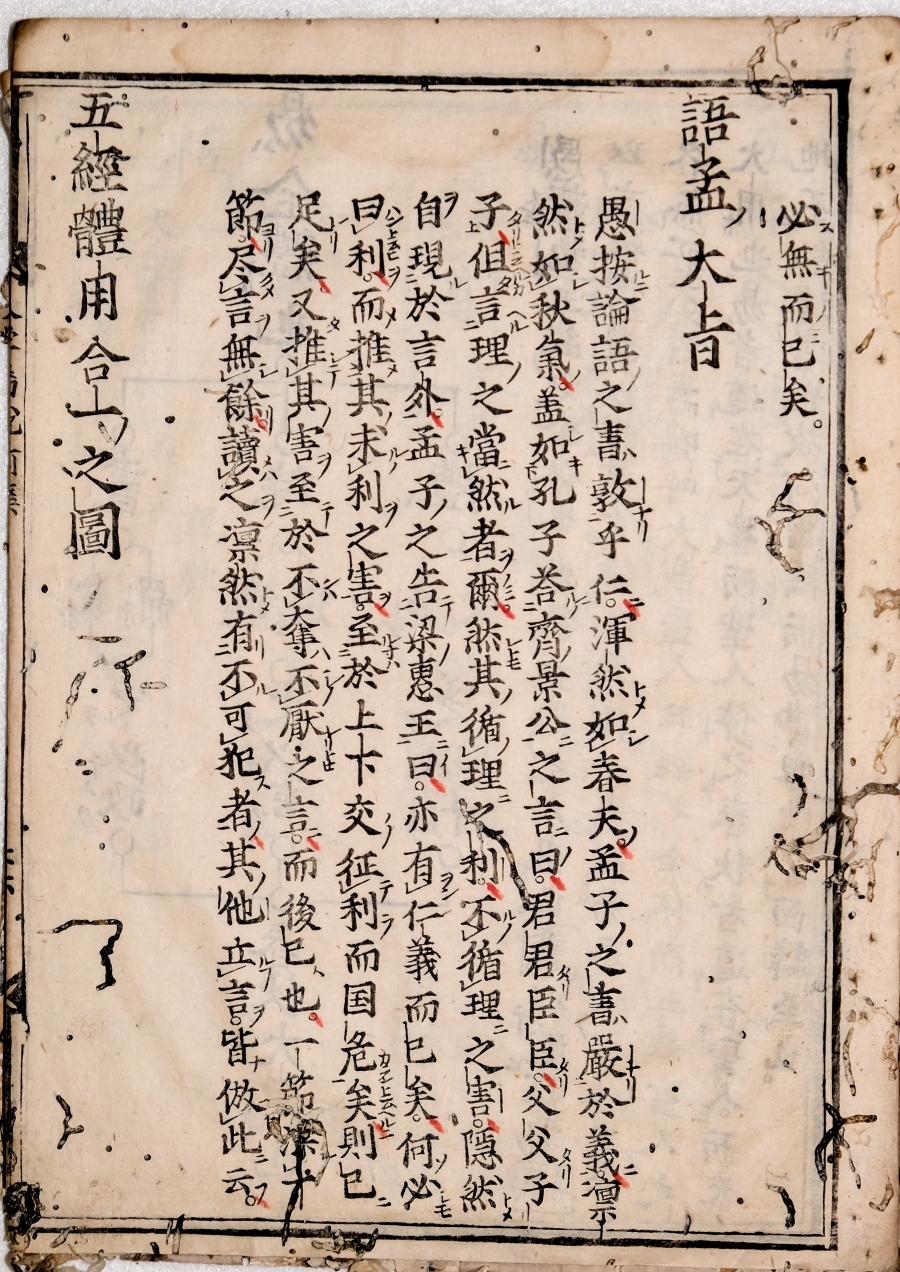 必無而已矣。
語孟大旨
愚按論語之書敦乎仁。渾然如春夫。孟子之書嚴於義。凛
然如秋氣。蓋如孔子荅齊景公之言曰。君君臣臣。父父子
子。但言理之當然者爾。然其循理之利。不循理之害。隠然
自現於言外。孟子之告梁惠王曰。亦有仁義而已矣。何必
曰利。而推其求利之害。至於上下交征利而国危矣則已
足矣。又推其害至於不奪不厭之言。而後已也。一節深才
節。尽言無餘。讀之凛然有不可犯者。其他立言。皆倣此云。
五經體用合一之圖